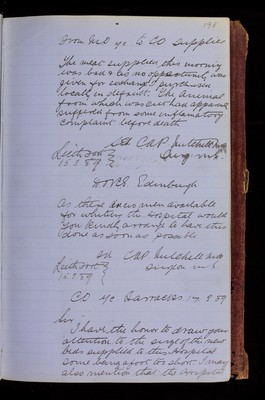 From M.O. i/c to CO Supplies
The meat supplied this morning
was bad & as no opportunity was
given for exchange I purchased
locally in default. The animal
from which was cut had apparently
suffered from some inflammatory
complaint before death
Sd C de P Mitchell MB
Leith Fort
15.3.89
Surg. M.S.
DDVCE. Edinburgh
As there are no men available
for whiting the Hospital would
you kindly arrange to have this
done as soon as possible
Sd C de P Mitchell MB
Leith Fort
15.3.89
Surgeon M.S.
CO i/c Barracks 17.3.89
Sir
I have the honor to draw your
attention to the size of the new
beds supplied to this Hospital
some being a foot too short. I may
also mention that the Hospital